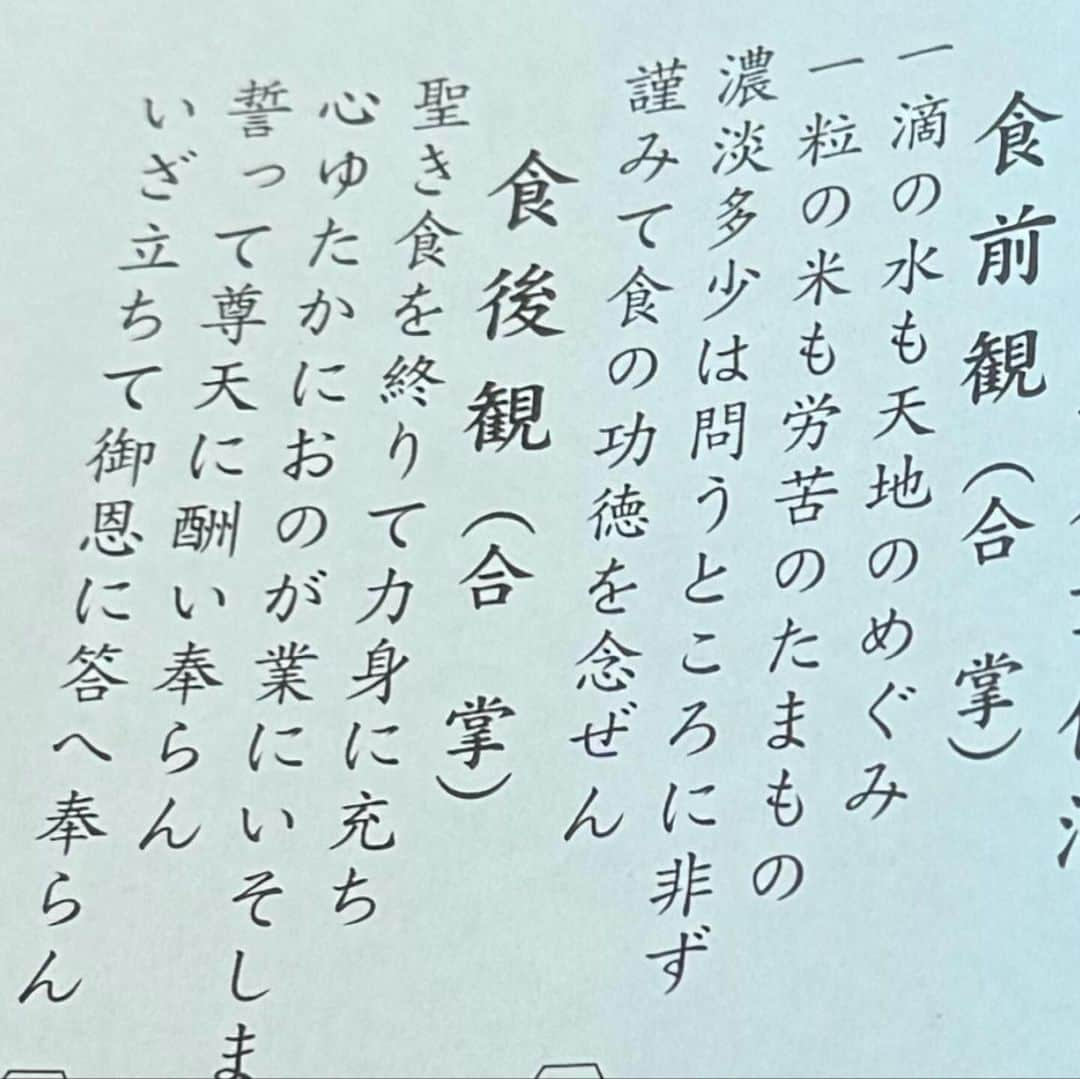 食前観（合　掌）
一滴の水も天地のめぐみ
一粒の米も労苦のたまもの
濃淡多少は問うところに非ず
謹みて食の功徳を念ぜん
食後観（合　掌）
聖き食を終りて力身に充ち
心ゆたかにおのが業にいそしま
誓って尊天に酬い奉らん
いざ立ちて御恩に答へ奉らん